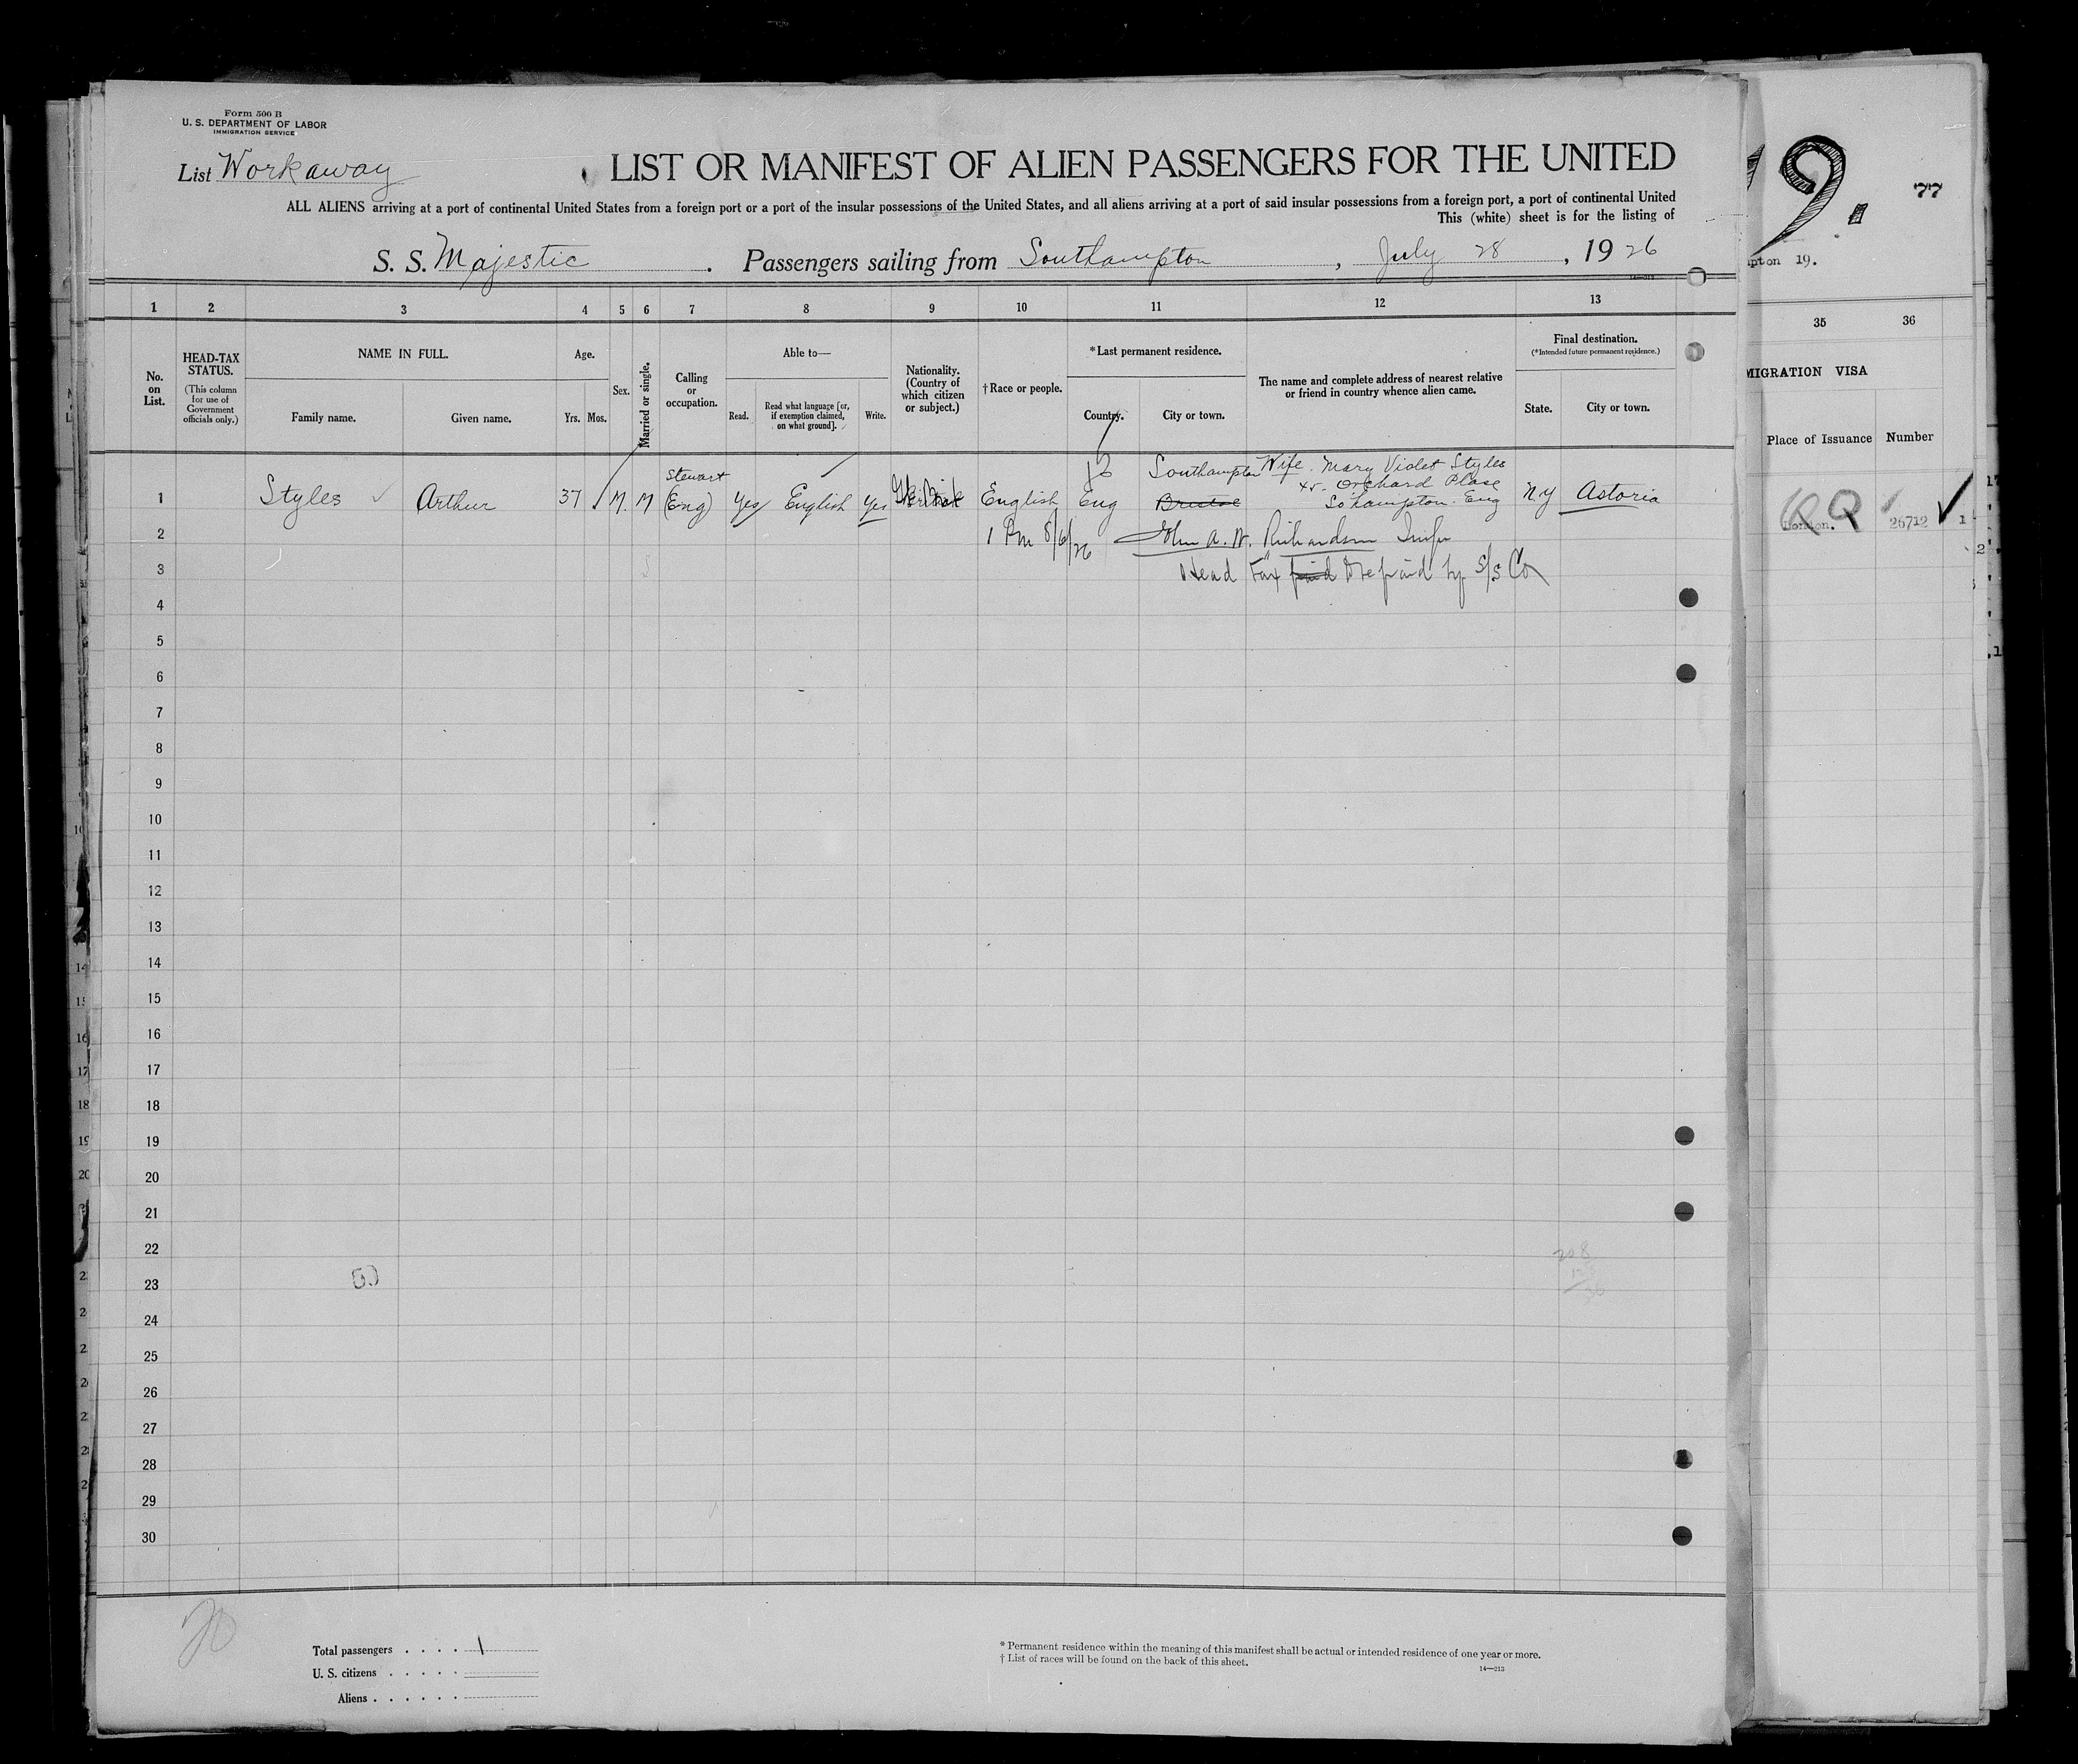 Form 500 B
U. S. DEPARTMENT OF LABOR
IMMIGRATION SERVICE
List Workaway
LIST OR MANIFEST OF ALIEN PASSENGERS FOR THE UNITED
ALL ALIENS arriving at a port of continental United States from a foreign port or a port of the insular possessions of the United States, and all aliens arriving at a port of said insular possessions from a foreign port, a port of continental United
This (white) sheet is for the listing of
S. S. Majestic . Passengers sailing from Southampton , July 28 , 19 26
1 2 3 4 5 6 7 8 9 10 11 12 13
No. on List.
HEAD-TAX STATUS.
(This column for use of Government officials only.)
NAME IN FULL.
Family name. Given name.
Age.
Yrs. Mos.
Sex.
Married or single.
Calling or occupation.
Able to—
Read. Read what language [or, if exemption claimed, on what ground]. Write.
Nationality. (Country of which citizen or subject.)
†Race or people.
*Last permanent residence.
Country. City or town.
The name and complete address of nearest relative or friend in country whence alien came.
Final destination.
(*Intended future permanent residence.)
State. City or town.
Stewart Southampton Wife. Mary Violet Styles
Orchard Place
1 Styles Arthur 37 M. M (Eng) Yes English Yes English Eng Bristol So'hampton. Eng N.Y Astoria
2 1 Pm 8/6/26 John A. W. Richardson
3 Head Tax paid Prepaid by S/S Co
4
5
6
7
8
9
10
11
12
13
14
15
16
17
18
19
20
21
22
23
24
25
26
27
28
29
30
20
Total passengers . . . . 1
U. S. citizens . . . . .
Aliens . . . . . .
* Permanent residence within the meaning of this manifest shall be actual or intended residence of one year or more.
† List of races will be found on the back of this sheet.
14—213
9. 77
pton 19.
35 36
MIGRATION VISA
Place of Issuance Number
London. 26712 1